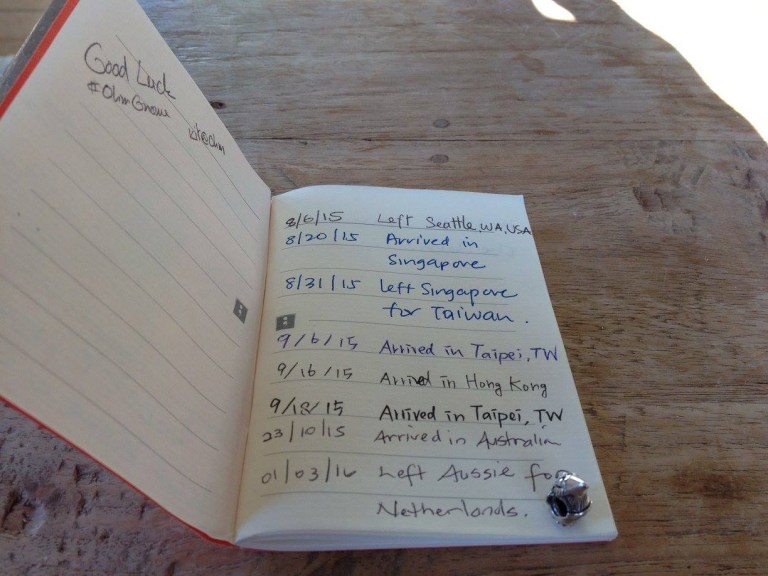 Good Luck
#OhmGnome
8/6/15 Left Seattle, WA, USA
8/20/15 Arrived in
Singapore
8/31/15 Left Singapore
for Taiwan.
9/6/15 Arrived in Taipei, TW
9/16/15 Arrived in Hong Kong
9/18/15 Arrived in Taipei, TW
23/10/15 Arrived in Australia
01/03/16 Left Aussie for
Netherlands.